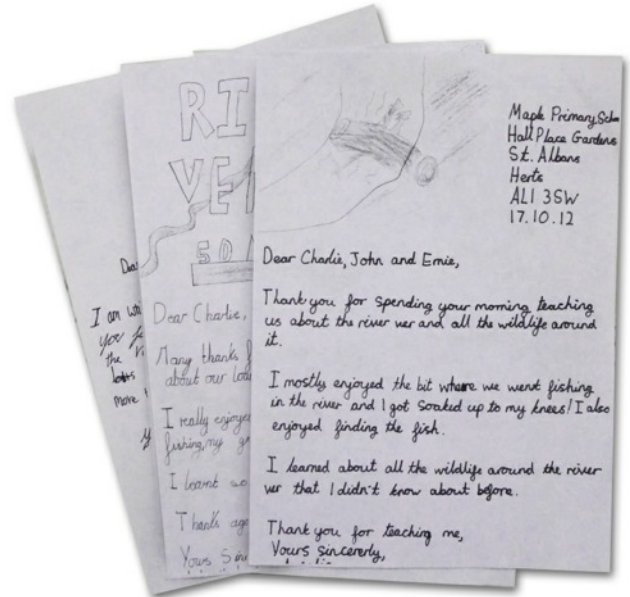 Maple Primary
Hall Place Gardens
St. Albans
Herts
AL1 3SW
17.10.12
Dear Charlie, John and Ernie,
Thank you for spending your morning teaching
us about the river ver and all the wildlife around
it.
I mostly enjoyed the bit where we went fishing
in the river and I got soaked up to my knees! I also
enjoyed finding the fish.
I learned about all the wildlife around the river
ver that I didn't know about before.
Thank you for teaching me,
Yours sincererly,
RI
VE
Dear Charlie,
Many thanks
about our
I really enjoyed
fishing, my
I learnt
Thanks
Yours
I am
you
the
more